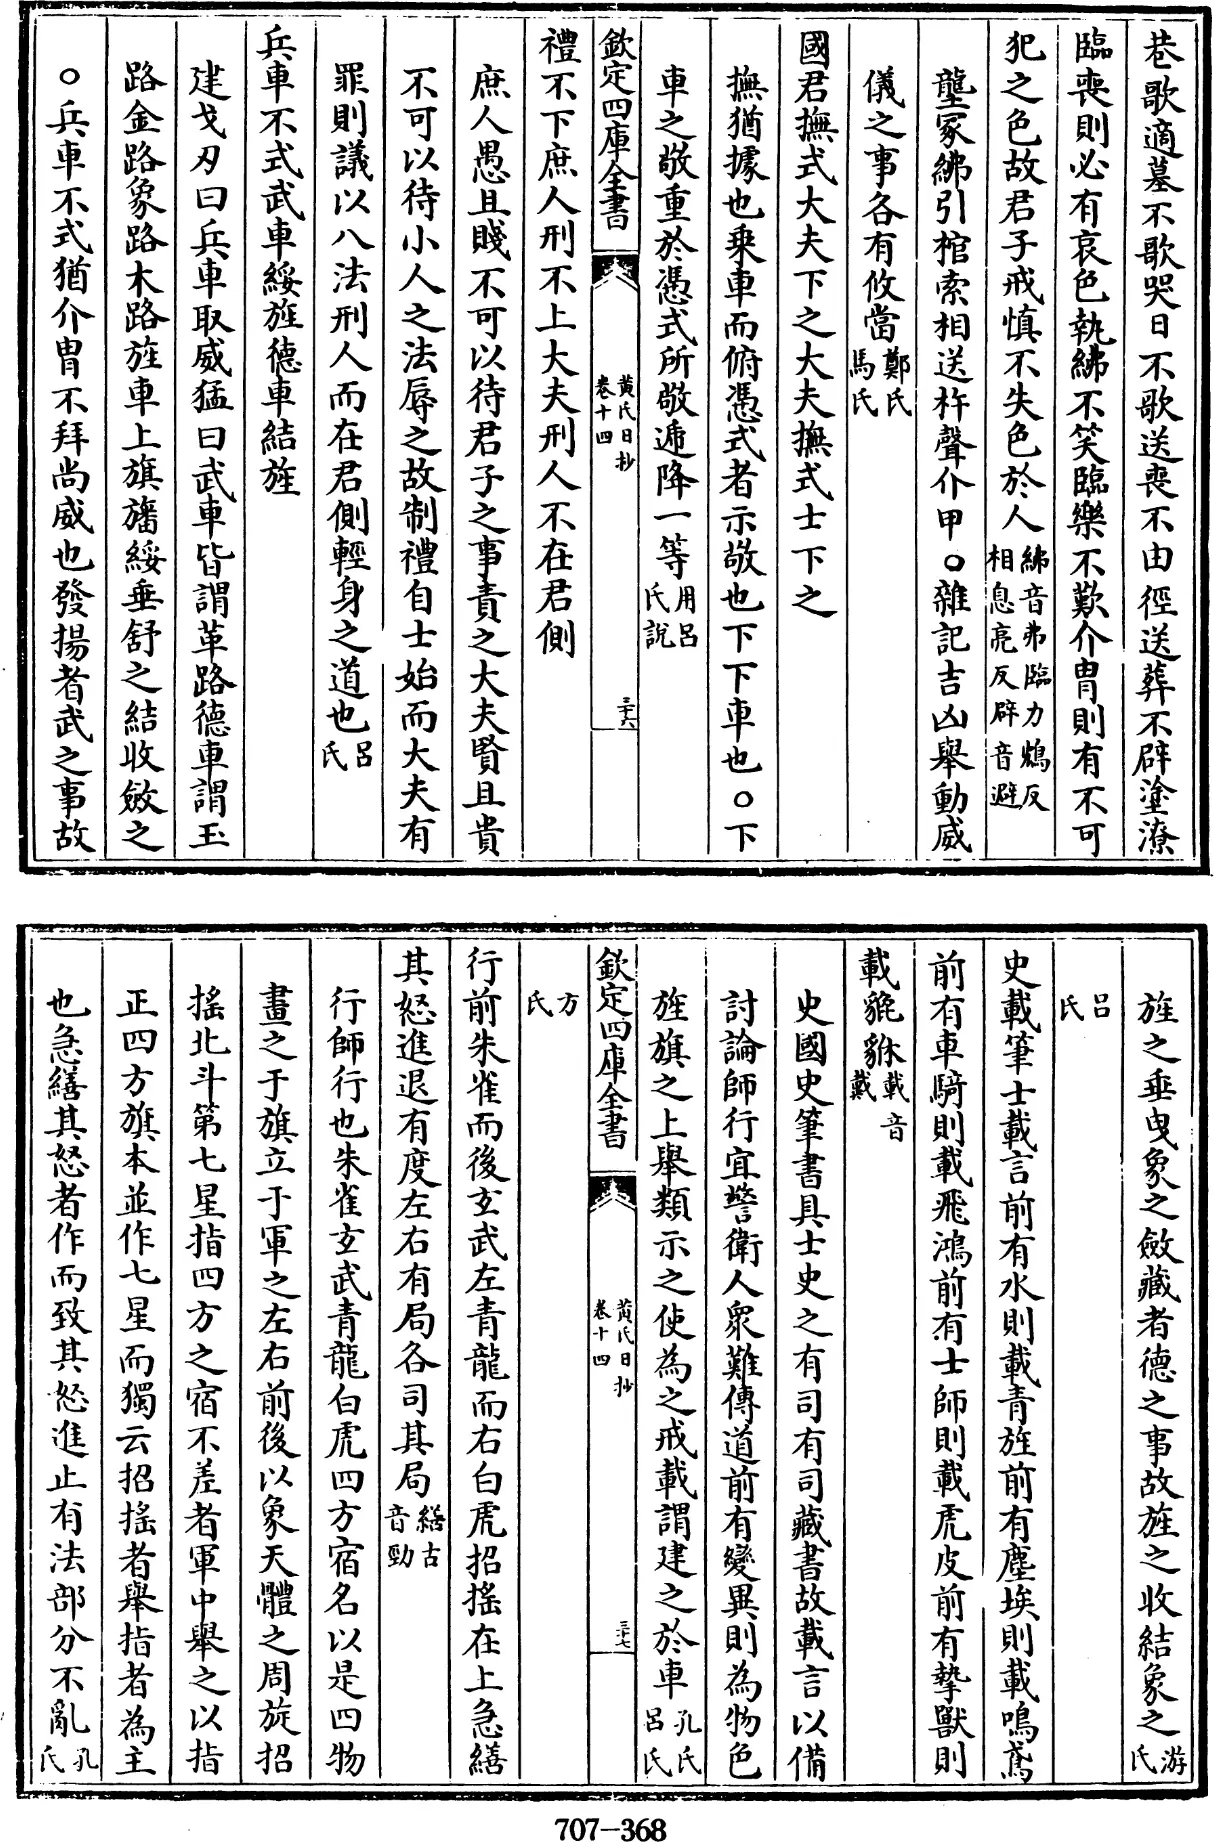 巷歌適墓不歌哭日不歌送喪不由徑送葬不辟塗潦
臨喪則必有哀色執紼不笑臨樂不歎介胄則有不可
犯之色故君子戒慎不失色於人紼音弗臨力鴆反相息亮反辟音避
壟冢紼引棺索相送杵聲介甲○雜記吉凶舉動威
儀之事各有攸當鄭氏馬氏
國君撫式大夫下之大夫撫式士下之
撫猶據也乗車而俯憑式者示敬也下下車也○下
車之敬重於憑式所敬遞降一等用吕氏説
欽定四庫全書
黄氏日抄
卷十四
三十六
禮不下庶人刑不上大夫刑人不在君側
庶人愚且賤不可以待君子之事責之大夫賢且貴
不可以待小人之法辱之故制禮自士始而大夫有
罪則議以八法刑人而在君側輕身之道也吕氏
兵車不式武車綏旌德車結旌
建戈刃曰兵車取威猛曰武車皆謂革路德車謂玉
路金路象路木路旌車上旗旛綏垂舒之結收斂之
○兵車不式猶介胄不拜尚威也發揚者武之事故
旌之垂曳象之斂藏者德之事故旌之收結象之游氏
吕氏
史載筆士載言前有水則載青旌前有塵埃則載鳴鳶
前有車騎則載飛鴻前有士師則載虎皮前有摯獸則
載貔貅載音戴
史國史筆書具士史之有司有司藏書故載言以備
討論師行宜警衛人衆難傳道前有變異則為物色
旌旗之上舉類示之使為之戒載謂建之於車孔氏吕氏
欽定四庫全書
黄氏日抄
卷十四
三十七
方氏
行前朱雀而後玄武左青龍而右白虎招搖在上急繕
其怒進退有度左右有局各司其局繕古音勁
行師行也朱雀玄武青龍白虎四方宿名以是四物
畫之于旗立于軍之左右前後以象天體之周旋招
搖北斗第七星指四方之宿不差者軍中舉之以指
正四方旗本並作七星而獨云招搖者舉指者為主
也急繕其怒者作而致其怒進止有法部分不亂孔氏
707-368